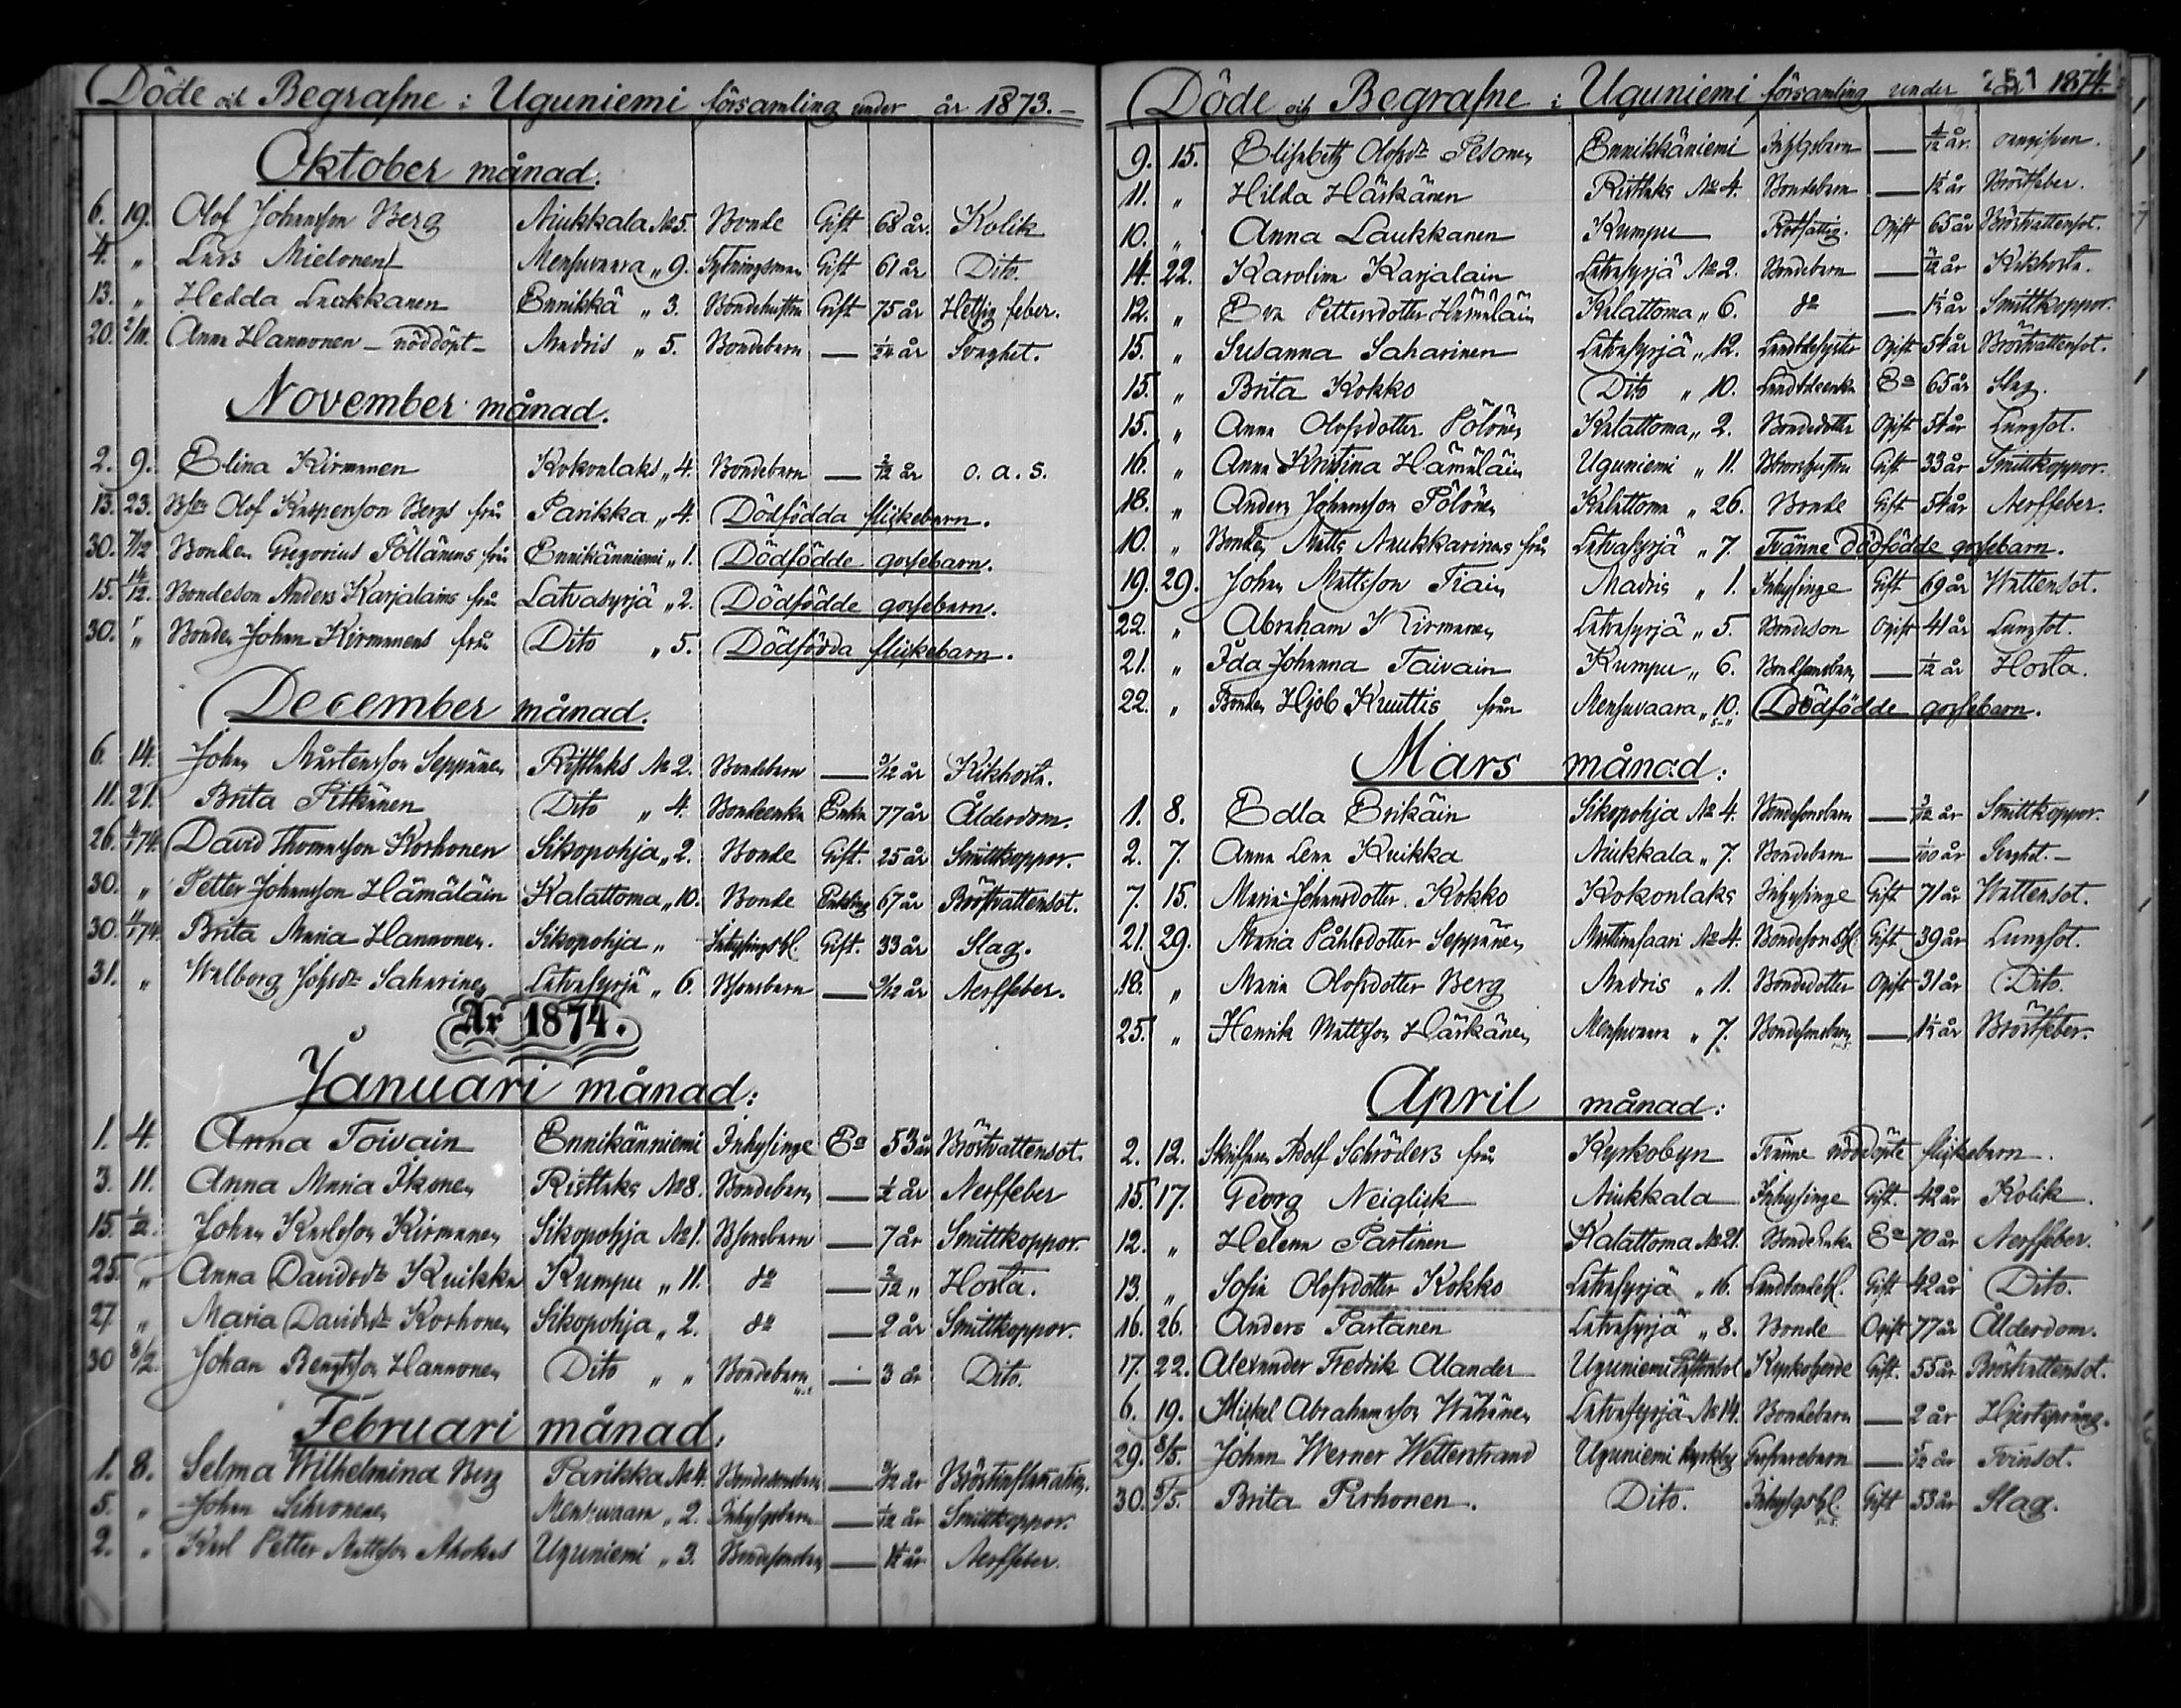 Döde och Begrafne i Uguniemi församling under år 1873.-
Oktober månad.
6. 19. Olof Johansson Berg Niukkala No 5. Bonde Gift 68 år. Kolik
4. " Lars Mielonen Mensuvaara " 9. Sytningsman Gift 61 år Dito.
13. " Hedda Laukkanen Ennikkä " 3. Bondehustru Gift 75 år Hetsig feber.
20. 2/11. Anna Hannonen - nöddöpt - Madris " 5. Bondebarn — 1/24 år Svaghet.
November månad.
2. 9. Elina Kirmanen Kokonlaks " 4. Bondebarn — 2/12 år o. a. s.
13. 23. Olof Kaspersson Bergs från Parikka " 4. Dödfödda flickebarn.
30. 7/12 Bonden Gregorius Pöllänens från Ennikänniemi " 1. Dödfödde gossebarn.
15. 14/12. Bondeson Anders Karjalains från Latvasyrjä " 2. Dödfödde gossebarn.
30. " Bonden Johan Kirmanens från Dito " 5. Dödfödda flickebarn.
December månad.
6. 14. Johan Mårtensson Seppänen Ristlaks No 2. Bondebarn — 9/12 år Kikhosta.
11. 21. Brita Pitkänen Dito " 4. Bondeenka Enka 77 år Ålderdom.
26. 4/1 74. David Thomasson Korhonen Sikopohja " 2. Bonde Gift. 25 år Smittkoppor.
30. " Petter Johansson Hämäläin Kalattoma " 10. Bonde Enkling 67 år Bröstvattensot.
30. 4/1 74. Brita Maria Hannonen. Sikopohja " Inhysingshl. Gift. 33 år Slag.
31. " Walborg Johsdr Saharinen Latvasyrjä " 6. Bsonsbarn — 9/12 år Nerffeber.
År 1874.
Januari månad:
1. 4. Anna Toivain Ennikänniemi Inhysinge Ea 53 år Bröstvattensot.
3. 11. Anna Maria Ikonen Ristlaks No 8. Bondebarn — 1/2 år Nerffeber
15. 1/2. Johan Karlsson Kirmanen Sikopohja No 1. Bsonsbarn — 7 år Smittkoppor.
25. " Anna Davidsdr Kuikka Kumpu " 11. do — 2/12 " Hosta.
27 " Maria Davidsdr Korhonen Sikopohja " 2. do — 2 år Smittkoppor.
30 8/2. Johan Bengtsson Hannonen Dito " " Bondebarn — 3 år Dito.
Februari månad.
1. 8. Selma Wilhelmina Berg Parikka No 4. Bondesonsbarn — 9/12 år Bröstinflamation.
5. " Johan Sihvonen Mensuvaara " 2. Inhysgsbarn — 1/12 år Smittkoppor.
2. " Karl Petter Mattsson Ahokas Uguniemi " 3. Bondesonsbarn — 1 1/2 år Nerffeber.
Döde och Begrafne i Uguniemi församling under år 1874.
251
9. 15. Elisabeth Olofsdr Pesonen Ennikkäniemi Inhysgsbarn — 4/12 år. oangifven.
11. " Hilda Härkänen Ristlaks No 4. Bondebarn — 1 1/2 år Bröstfeber.
10. " Anna Laukkanen Kumpu Rotfattig. Ogift 65 år Bröstvattensot.
14. 22. Karolina Karjalain Latvasyrjä No 2. Bondebarn — /12 år Kikhosta.
12. " Eva Pettersdotter Hämäläin Kalattoma " 6. do — 1 1/2 år Smittkoppor.
15. " Susanna Saharinen Latvasyrjä " 12. Landbdesyster Ogift 54 år Bröstvattensot.
15. " Brita Kokko Dito " 10. Landbdeenka Ea 65 år Slag.
15. " Anna Olofsdotter Pölönen Kalattoma " 2. Bondedotter Ogift 54 år Lungsot.
16. " Anna Kristina Hämäläin Uguniemi " 11. Bbrorshustru Gift. 33 år Smittkoppor.
18. " Anders Johansson Pölönen Kalattoma " 26. Bonde Gift 54 år Nerffeber.
10. " Bonden Matts Naukkarinens från Latvasyrjä " 7. Tvänne dödfödde gossebarn.
19. 29. Johan Mattsson Tiain Madris " 1. Inhysinge Gift 69 år Wattensot.
22. " Abraham Kirmanen Latvasyrjä " 5. Bondeson Ogift 41 år Lungsot.
21. " Ida Johanna Taivain Kumpu " 6. Bondsonsbarn — 1/12 år Hosta.
22. " Bonden Hjob Kuuttis från Mensuvaara " 10. Dödfödde gossebarn.
Mars månad:
1. 8. Edla Erikäin Sikopohja No 4. Bondesonsbarn — 3/12 år Smittkoppor.
2. 7. Anna Lena Kuikka Niukkala " 7. Bondebarn — 1/100 år Svaghet.-
7. 15. Maria Johansdotter Kokko Kokonlaks Inhysinge Gift 71 år Wattensot.
21. 29. Maria Påhlsdotter Seppänen Marttinsaari No 4. Bondesonshl. Gift 39 år Lungsot.
18. " Maria Olofsdotter Berg Madris " 1. Bondedotter Ogift 31 år Dito.
25. " Henrik Mattsson Härkänen Mensuvaara " 7. Bondesonsbarn — 1 1/2 år Bröstfeber.
April månad:
2. 12. Skaffaren Adolf Schröders från Kyrkobyn Tvänne nöddöpte flickebarn.
15. 17. Georg Neiglick Niukkala Inhysinge Gift. 42 år Kolik.
12. " Helena Partinen Kalattoma No 21. BondeEnka Ea 70 år Nerffeber.
13. " Sofia Olofsdotter Kokko Latvasyrjä " 16. Landbondehl. Gift 42 år Dito.
16. 26. Anders Partanen Latvasyrjä " 8. Bonde Ogift 77 år Ålderdom.
17. 22. Alexander Fredrik Alander Uguniemi Prestbol Kyrkoherde Gift. 55 år Bröstvattensot.
6. 19. Mickel Abrahamsson Wähänen Latvasyrjä No 14. Bondebarn — 2 år Hjertsprång.
29. 8/5. Johan Werner Wetterstrand Uguniemi kyrkby Garfvarebarn — 5/12 år Tvinsot.
30. 5/5. Brita Pirhonen. Dito. Inhysgshl. Gift 53 år Slag.